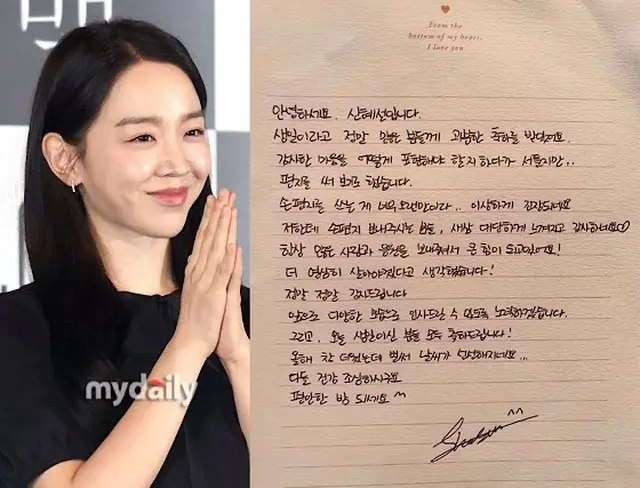 From the
bottom of my heart,
I love you
안녕하세요. 신혜선입니다.
생일이라고 정말 많은 분들께 과분한 축하를 받았어요.
감사한 마음을 어떻게 표현해야 할지 하다가 서툴지만..
편지를 써 보기로 했습니다.
손편지를 쓰는 게 너무 오랜만이라.. 이상하게 긴장되네요
저한테 손편지 보내주시는 분들, 새삼 대단하게 느껴지고 감사하네요♡
항상 많은 사랑과 응원을 보내주셔서 큰 힘이 되고있어요!
더 열심히 살아야겠다고 생각했습니다!
정말 정말 감사드립니다
앞으로 다양한 모습으로 인사드릴 수 있도록 노력하겠습니다.
그리고, 오늘 생일이신 분들 모두 축하드립니다!
올해 참 더웠는데 벌써 날씨가 선선해지네요...
다들 건강 조심하시구요
편안한 밤 되세요 ^^
^^
mydaily